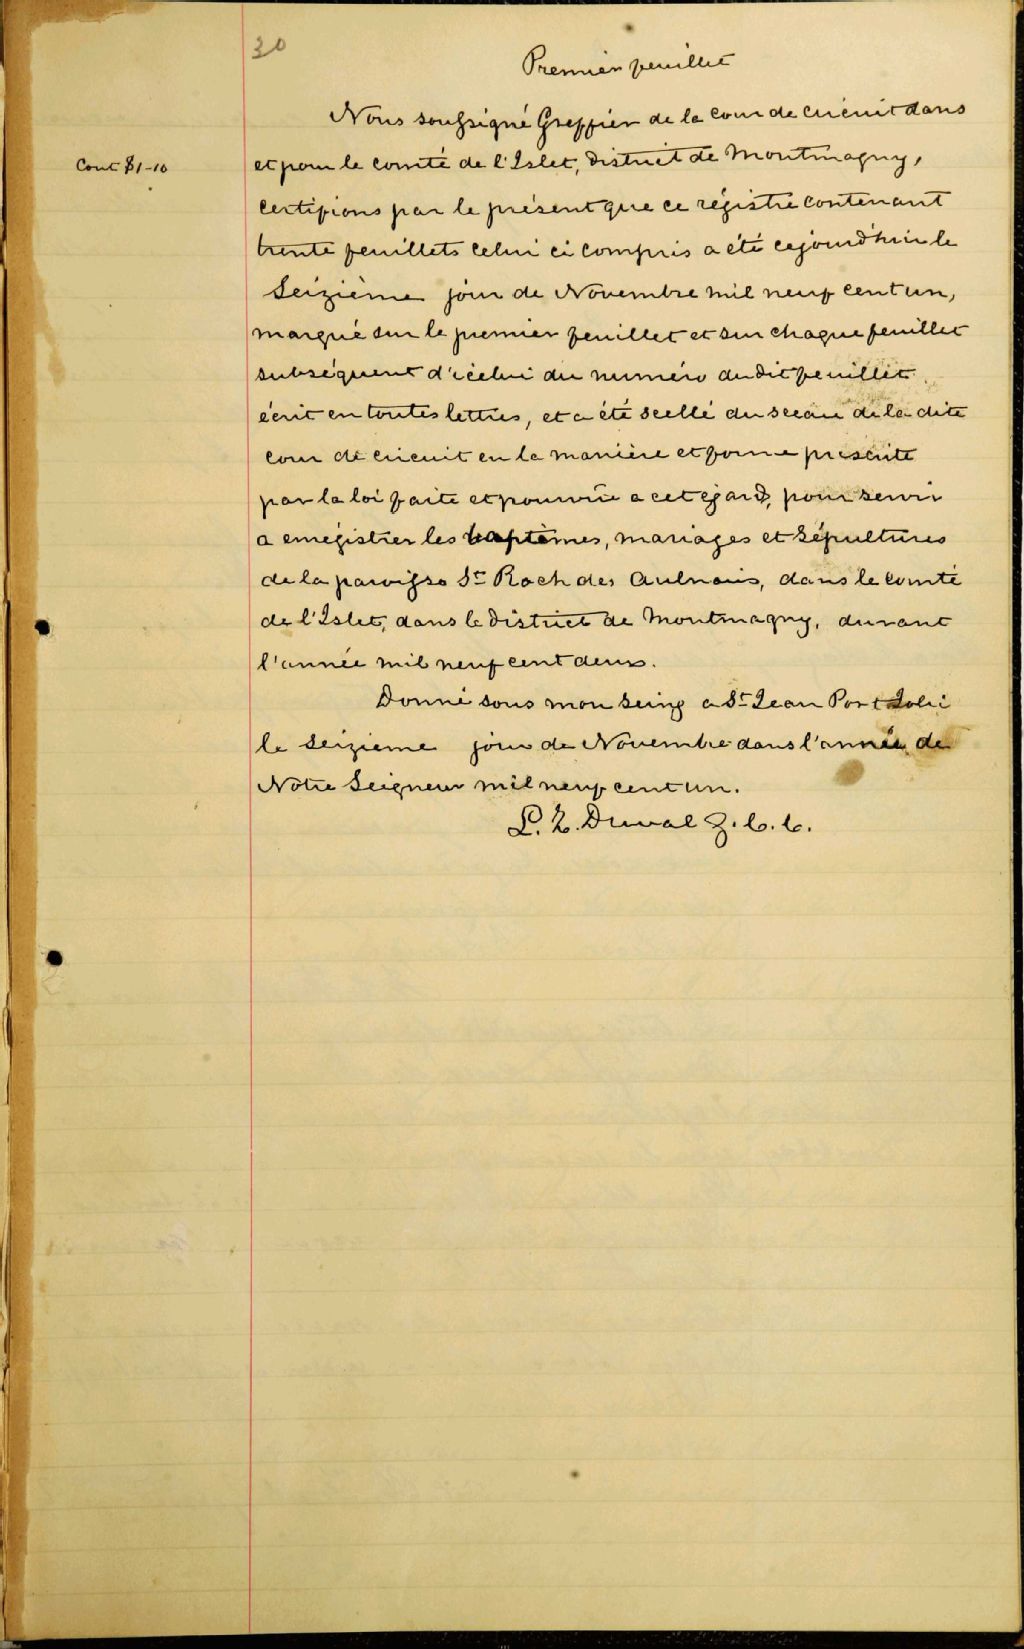 30
Premier feuillet
Nous soussigné Greffier de la cour de circuit dans
Cout $1-10
et pour le comté de l'Islet, District de Montmagny,
certifions par le présent que ce régistre contenant
trente feuillets celui ci compris a été cejourd'hui le
Seizième jour de Novembre mil neuf cent un,
marqué sur le premier feuillet et sur chaque feuillet
subséquent d'icelui du numéro dudit feuillet
écrit en toutes lettres, et a été scellé du sceau de la dite
cour de circuit en la manière et forme prescrite
par la loi faite et pourvue a cet égard, pour servir
a enrégistrer les baptèmes, mariages et sépultures
de la paroisse St Roch des Aulnais, dans le comté
de l'Islet, dans le District de Montmagny, durant
l'année mil neuf cent deux.
Donné sous mon seing a St Jean Port Joli
le Seizième jour de Novembre dans l'année de
Notre Seigneur mil neuf cent un.
L. Z. Duval G. C. C.